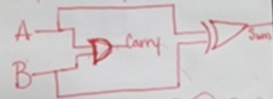 A
Carry
Sum
B